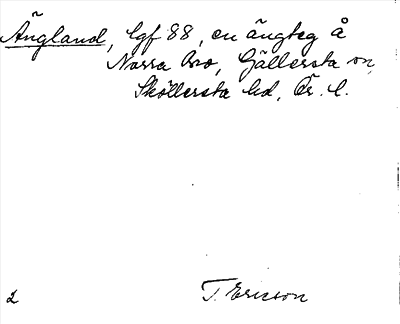 Ängland, lgf 88, en ängteg å
Norra Bro, Gällersta sn,
Sköllersta hd, Ör. l.
2 T. Ericson